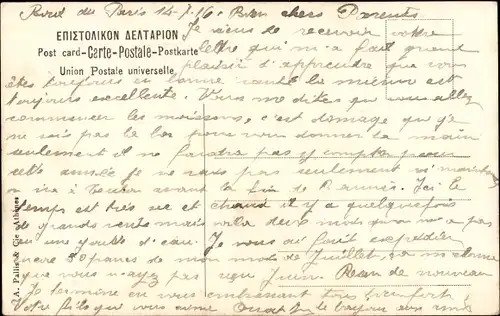 Bord du Paris 14-7-16. Bien chers Parents
ΕΠΙΣΤΟΛΙΚΟΝ ΔΕΛΤΑΡΙΟΝ
Post card-Carte-Postale-Postkarte
Union Postale universelle
Je viens de recevoir votre
lettre qui m'a fait grand
plaisir d'apprendre que vous
êtes toujours en bonne santé la mienne est
toujours excellente. Vous me dites que vous allez
commencer les moissons, c'est domage que je
ne sois pas la bas pour vous donner la main
seulement il ne faudra pas y compter pour
cette année je ne sais pas seulement si
on ira à Toulon avant la fin de l'année. Ici le
temps est très sec et chaud il y a quelquefois
de grands vents mais voila deux mois qu'on n'a pas
vu une goutte d'eau. Je vous ai fait expédier
de mon mois de Juillet,
que vous n'ayez pas reçu Juin. Rien de nouveau
Je termine en vous embrassant tous bien fort
Votre fils qui vous aime
le bonjour aux amis
A. Pallis & Cie Athènes